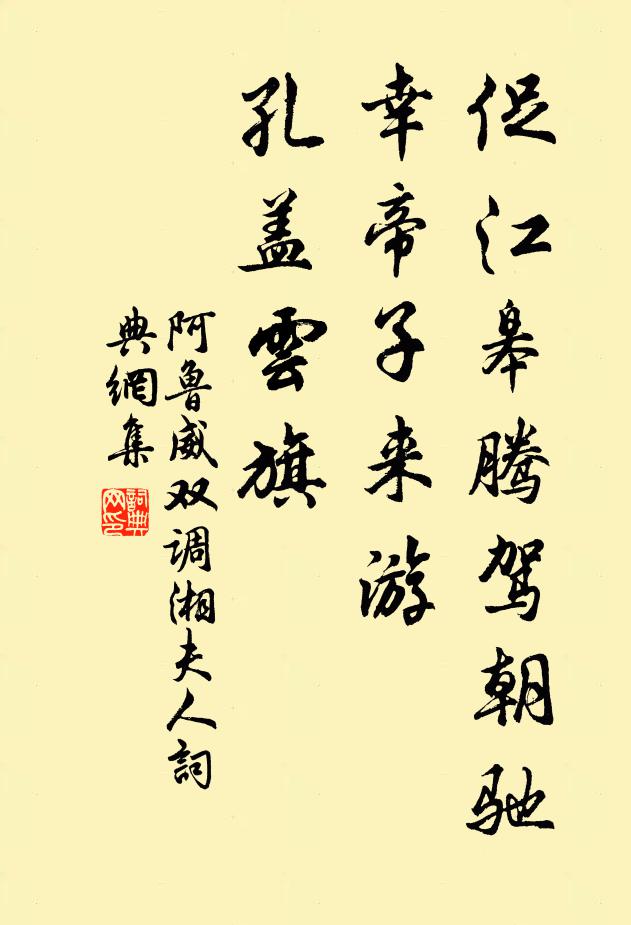 促江皋腾驾朝驰
幸帝子来游
孔盖雲旗
阿鲁威双调湘夫人詞
典網集
詞典
网印